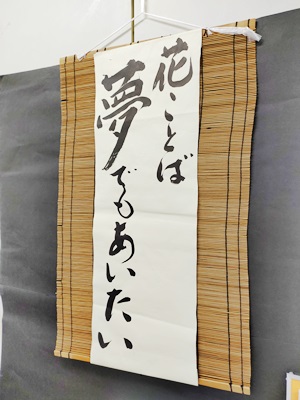 花ことば
夢でもあいたい